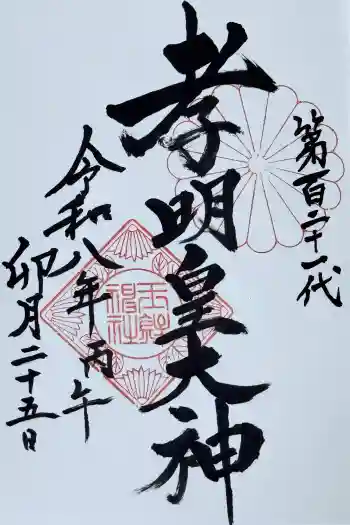 第百二十一代
孝明皇大神
令和八年丙午
卯月二十五日
玉鉾
神社